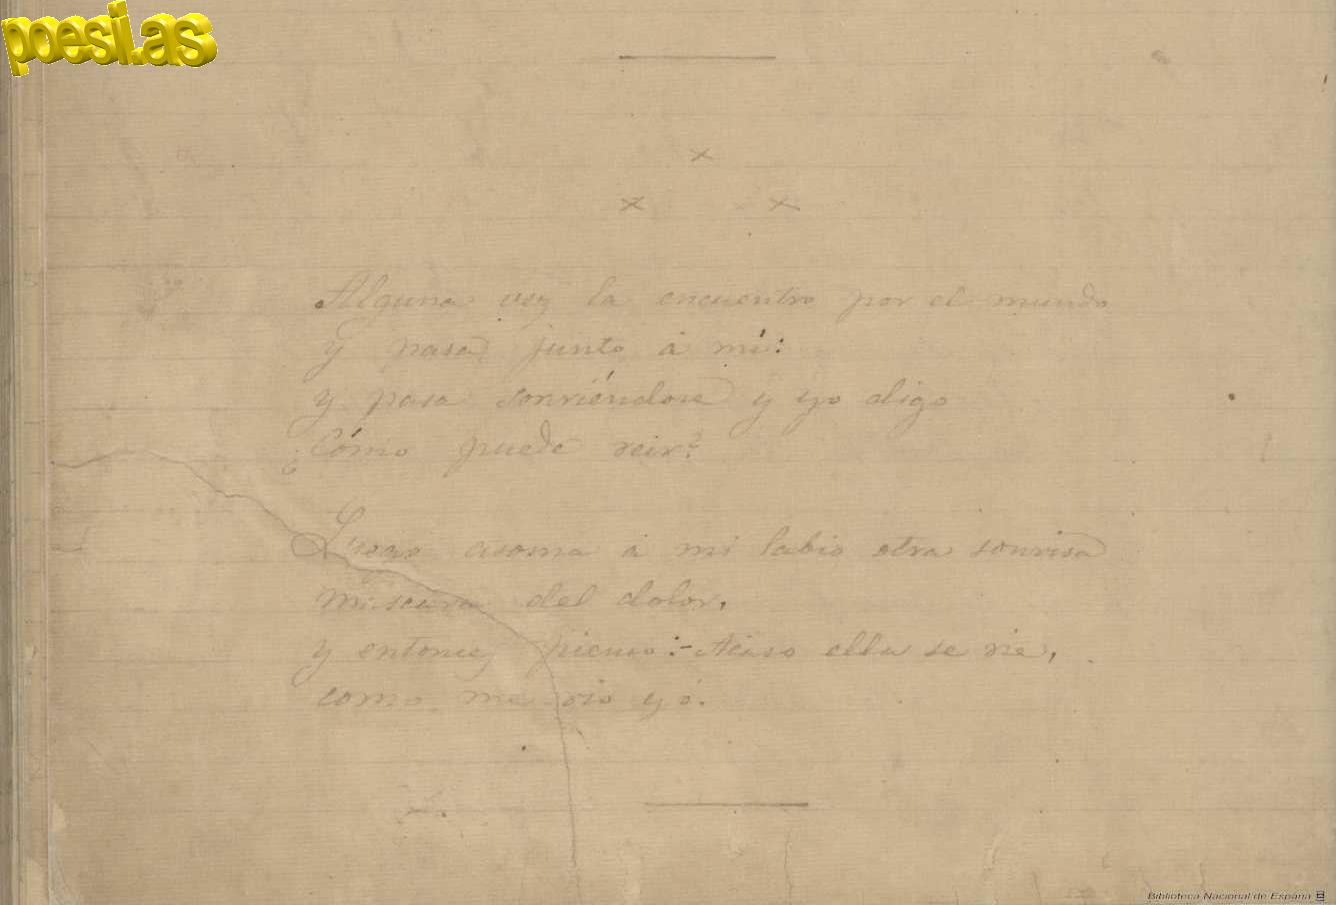 poesi.as
Alguna vez la encuentro por el mundo
y pasa junto á mí:
y pasa sonriéndose y yo digo
¿Cómo puede reir?
Luego asoma á mi labio otra sonrisa
máscara del dolor,
y entonces pienso:- Acaso ella se rie,
como me rio yó.
Biblioteca Nacional de España